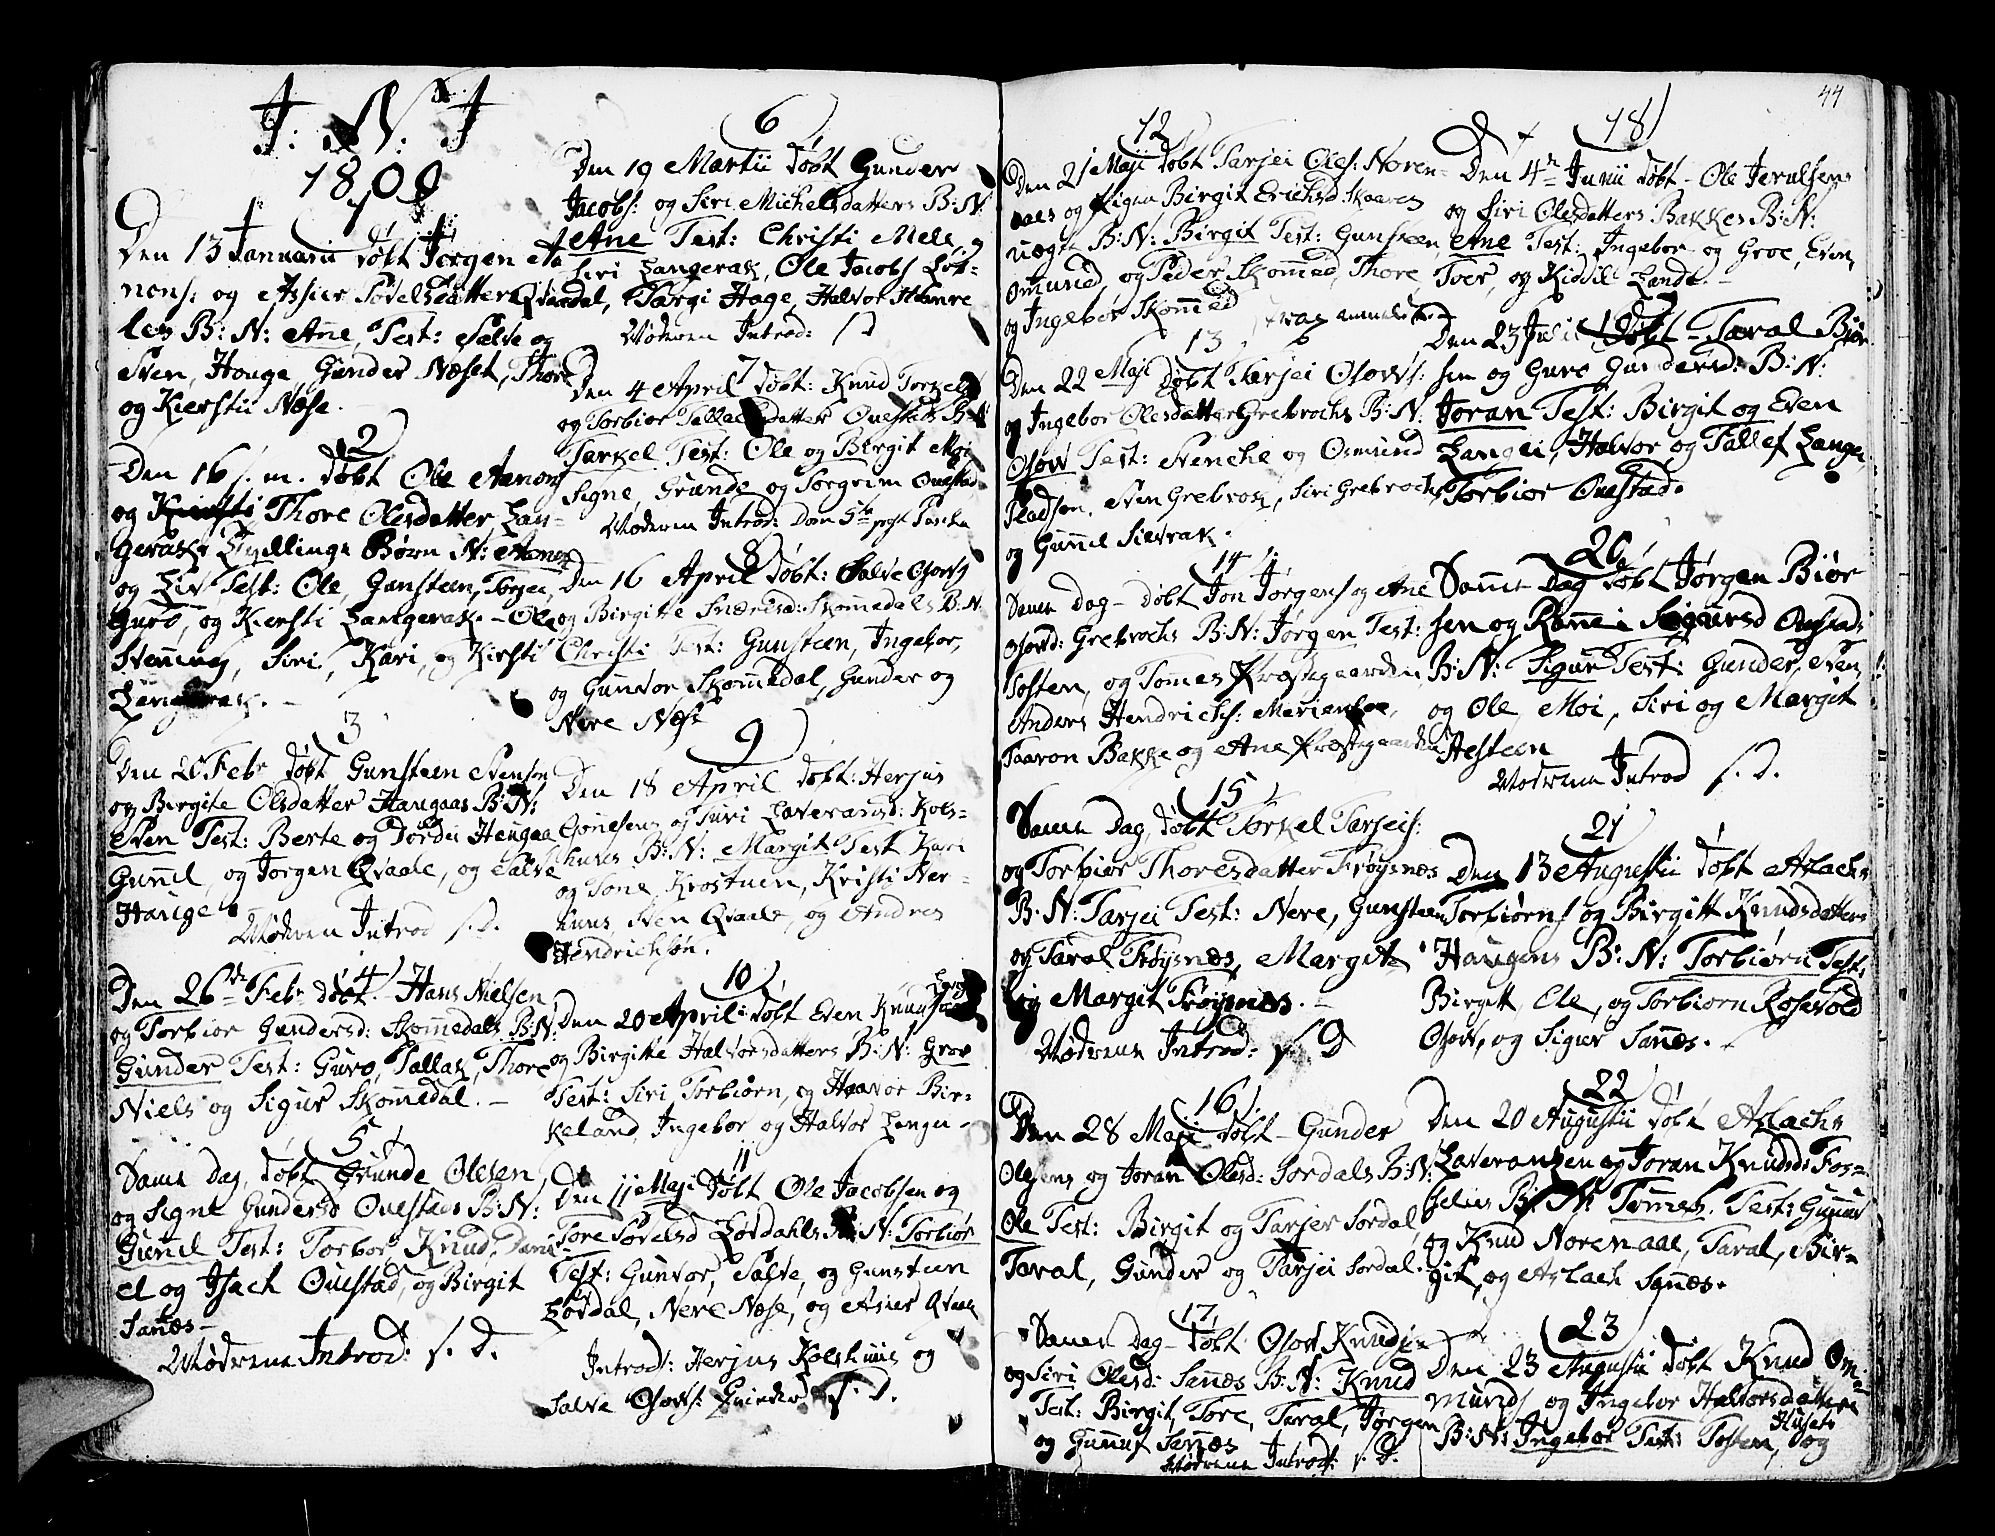 J: N: J
1809
1
Den 13 Januarii døbt Jørgen Aa
nens: og Assier Sovelsdatters Qvaa
les B: N: Ane, Test: Salve og
Sven, Houge, Gunder Næset, Thore
og Kiersti Næse.
2
Den 16 s. m. døbt Ole Aanons
og Thore Olesdatter Lan-
geraks Tvillinge Børn N: Aanon
og Liv Test: Ole, Gunsteen, Torjer,
Guro, og Kiersti Langerak. - Ole
Svennungs, Siri, Kari, og Kirsti
Langerak. -
3
Den 20 Febr døbt Gunsteen Svenson
og Birgite Olsdatter Haugaas B: N:
Sven Test: Berte og Dordei Haugaa
Gunil, og Jørgen Qvaale, og Salve
Hauge
Modren Introd s. D.
4
Den 26de Febr døbt. Hans Nielsen
og Torbior Gundersd: Skomedals B: N:
Gunder Test: Guro, Tallak, Thore
Niels og Sigur Skomedal. -
5
Same Dag, døbt Grunde Olesen
og Signe Gundersd Ouestads B: N:
Gunil Test: Torbor, Knud, Dani-
el og Isach Ouestad, og Birgit
Sanæs -
Modrene Introd: s. D.
6
Den 19 Martii døbt Gunder
Jacobs: og Siri Michelsdatters B: N:
Ane Test: Christi Mele, og
Siri Langerak, Ole Jacobs Løv-
dal, Targi Hage, Halvor Homre
Modren Introd: s D
7
Den 4 April døbt: Knud Torkels
og Torbior Tallaksdatter Ouestads B: N:
Tarkel Test: Ole og Birgit Moi
Signe, Grunde og Torgrim Ouestad
Modren Introd: Dom 5ta post Pascha
8
Den 16 April døbt: Salve Osovs
og Birgitte Snæresd: Skomedals B: N:
Christi Test: Gunsteen, Ingebor,
og Gunvor Skomedal, Gunder og
Nere Næse
9
Den 18 April døbt: Herjus
Gonesens og Turi Laveransd: Kols-
huus B: N: Margit Test Kari
og Tone Krostuen, Kristi Ner-
huus, Sven Qvaale, og Andres
Hendrichsøn.
10
Den 20 April: døbt Even Knuds
og Birgitte Halvorsdatters B: N: Groe
Test: Siri Torbiørn, og Haavor Bir-
keland, Ingebor og Halvor Langei -
11
Den 11 Maji døbt Ole Jacobsen og
Tore Sovelsd Løvdahls B: N: Torbiør
Test: Gunvor, Salve, og Gunsteen
Løvdal, Nere Næse, og Asier Qvaale
Introd: Herjus Kolshuus og
Salve Osovs: Qvinder s. D.
44
12
Den 21 Maji døbt Tarjei Oles: Noren-
aaes og Pigen Birgit Erichsd Skaaren
uægte B: N: Birgit Test: Gunsteen,
Omund, og Peder Skomed, Thore,
og Ingebor Skommed
13
Den 22 Maji døbt Tarjei Osovs:
og Ingebor Olesdatter Grebrochs B: N:
Osov Test: Svenche og Osmund
Pladsen, Sven Grebrok, Siri Grebrochs
og Gunnil Sievrak.
14
Same Dag - døbt Jon Jørgens og Ane
Osovd: Grebrochs B: N: Jørgen Test:
Tosten, og Tomes Præstegaarden,
Anders Hendrichs:
Faaron Bakke og Ane Præstegaarden
15
Same Dag, døbt Torkel Tarjeis:
og Torbiør Thoresdatter Frøysnæs
B: N: Tarjei Test: Nere, Gunsteen
og Taral Frøysnæs, Margit
og Margit Frøysnæs. -
Modrene Introd: s. D
16
Den 28 Maji døbt - Gunder
Olesens og Joran Olesd: Sordals B: N:
Ole Test: Birgit og Tarjer Sordal,
Taral, Gunder og Tarjei Sordal.
17
Samme Dag - døbt Osov Knuds
og Siri Olesd: Sanæs B: N: Knud
Test: Birgit, Tore, Taral, Jørgen
og Gunuf Sanæs
Modrene Introd: s. D.
18
Den 4de Junii døbt - Ole Jerulsens
og Siri Olesdatters Bakkes B: N:
Ane Test: Ingebor og Groe, Even,
Toer, og Kiddil Lande. -
19
Den 23 Julii døbt - Taral Biør
sen og Guro Gundersd: B: N:
Joran Test: Birgit og Even
Langei, Halvor og Tallef Langei
Torbior Ouestad.
20
Samme Dag døbt Jørgen Biør
sen og Rønnei Sigursd Ouestads
B: N: Sigur Test: Gunder, Sven,
og Ole Moi, Siri og Margit
Aesteen
Modrene Introd s. D.
21
Den 13 Augustii døbt Aslachs
Torbiørns og Birgitt Knudsdatters
Haugens B: N: Torbiørn Test:
Birgitt, Ole, og Torbiørn Rosevold
Osov, og Sigur Sanæs. -
22
Den 20 Augustii døbt Aslachs
Laveransen og Joran Knudsd: Fos-
selies B: N: Tomes. Test: Gunnur
og Knud Norenaae, Taral, Bir-
git, og Aslach Sanæs.
23
Den 23 Augustii døbt Knud Om-
munds og Ingebor Halvorsdatters
Husets
B: N: Ingebor Test: Tosten, og